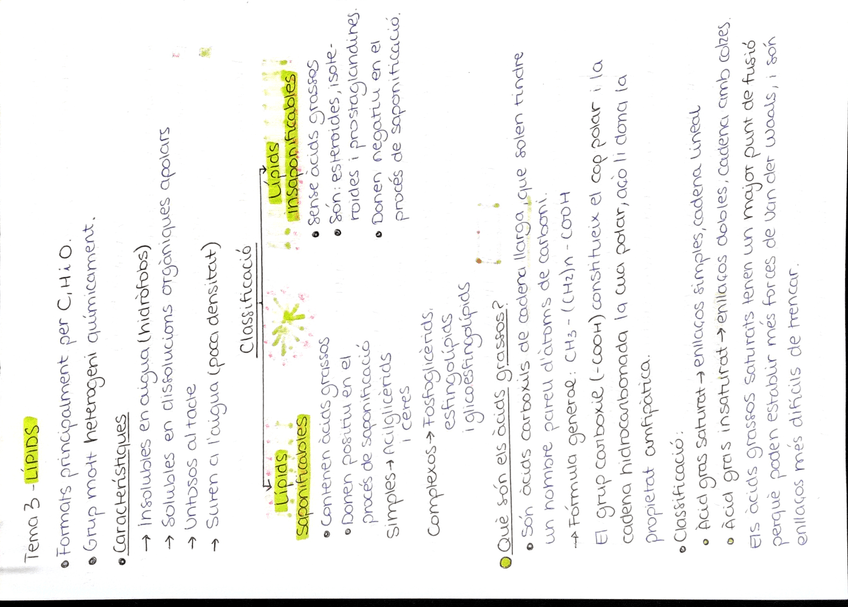 Tema 3 - LÍPIDS
• Formats principalment per C, H i O.
• Grup molt heterogeni químicament.
• Característiques
→ Insolubles en aigua (hidròfobs)
→ Solubles en dissolucions orgàniques apolars
→ Untosos al tacte
→ Suren a l'aigua (poca densitat)
Classificació
Lípids
saponificables
• Contenen àcids grassos
• Donen positiu en el
procés de saponificació
Simples → Acilglicèrids
i ceres
Complexos → Fosfoglicèrids,
esfingolípids
i glicoesfingolípids
Lípids
insaponificables
• Sense àcids grassos
• Són: esteroides, isote-
roides i prostaglandines.
• Donen negatiu en el
procés de saponificació.
Què són els àcids grassos?
• Són àcids carboxils de cadena llarga, que solen tindre
un nombre parell d'àtoms de carboni.
→ Fórmula general: CH3 - (CH2)n - COOH
El grup carboxil (-COOH) constitueix el cap polar i la
cadena hidrocarbonada la cua polar, açò li dona la
propietat amfipàtica.
• Classificació:
• Àcid gras saturat → enllaços simples, cadena lineal
• Àcid gras insaturat → enllaços dobles, cadena amb colzes.
Els àcids grassos saturats tenen un major punt de fusió
perquè poden establir més forces de Van der Waals, i són
enllaços més difícils de trencar.